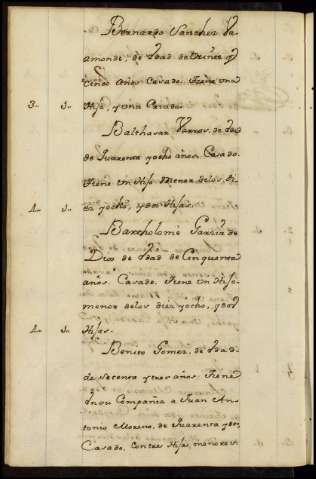 Bernardo Sanchez
de hedad de
cinco años Casado. tiene una
3. 3. Hija, y una
Balthasar de
de Quarenta y ocho años. Casado.
tiene un Hijo menor delos
4. 3. ocho, y dos Hijas.
Bartholomé Garzia de
Dios de hedad de Cinquenta
años Casado, tiene un Hijo
menor delos diez y ocho, y dos
4. 3. Hijas.
Benito Gomez, de hedad
de setenta y tres años. tiene
en su Compañia a Juan An-
tonio Moreno, de Quarenta y
Casado, con tres Hijos, menores